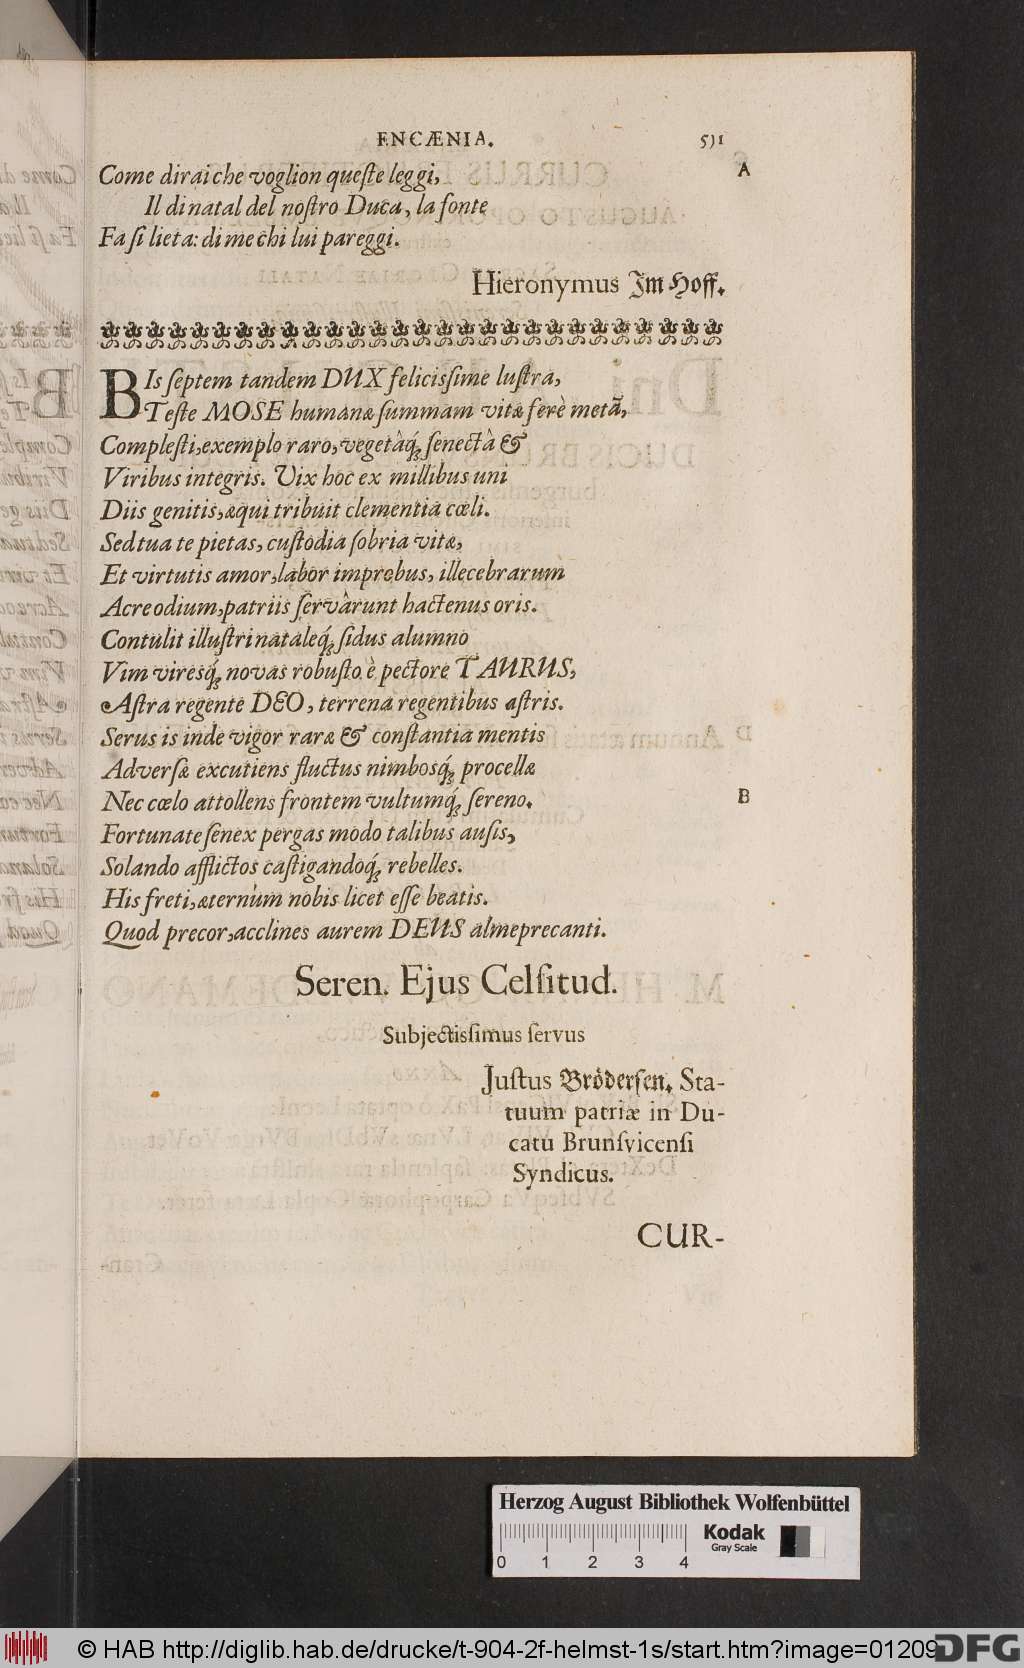 ENCÆNIA. 511
A
Come dirai che voglion queſte leggi,
Il di natal del noſtro Duca, la fonte
Fa ſi lieta: di me chi lui pareggi.
Hieronymus Im Hoff.
BIs ſeptem tandem DUX feliciſſime luſtra,
Teſte MOSE humanæ ſummam vitæ ferè metã,
Compleſti, exemplo raro, vegetâq́; ſenectâ &
Viribus integris. Vix hoc ex millibus uni
Diis genitis, æqui tribuit clementia cœli.
Sed tua te pietas, cuſtodia ſobria vitæ,
Et virtutis amor, labor improbus, illecebrarum
Acre odium, patriis ſervârunt hactenus oris.
Contulit illuſtri nataleq́; ſidus alumno
Vim viresq́; novas robuſto è pectore TAURUS,
Aſtra regente DEO, terrena regentibus aſtris.
Serus is inde vigor raræ & conſtantia mentis
Adverſæ excutiens fluctus nimbosq́; procellæ
Nec cœlo attollens frontem vultumq́; ſereno.
B
Fortunate ſenex pergas modo talibus auſis,
Solando afflictos caſtigandoq́; rebelles.
His freti, æternùm nobis licet eſſe beatis.
Quod precor, acclines aurem DEUS alme precanti.
Seren. Ejus Celſitud.
Subjectisſimus ſervus
Juſtus Brödersen, Sta-
tuum patriæ in Du-
catu Brunſvicenſi
Syndicus.
CUR-
Herzog August Bibliothek Wolfenbüttel
Kodak
Gray Scale
0 1 2 3 4
© HAB http://diglib.hab.de/drucke/t-904-2f-helmst-1s/start.htm?image=01209
DFG